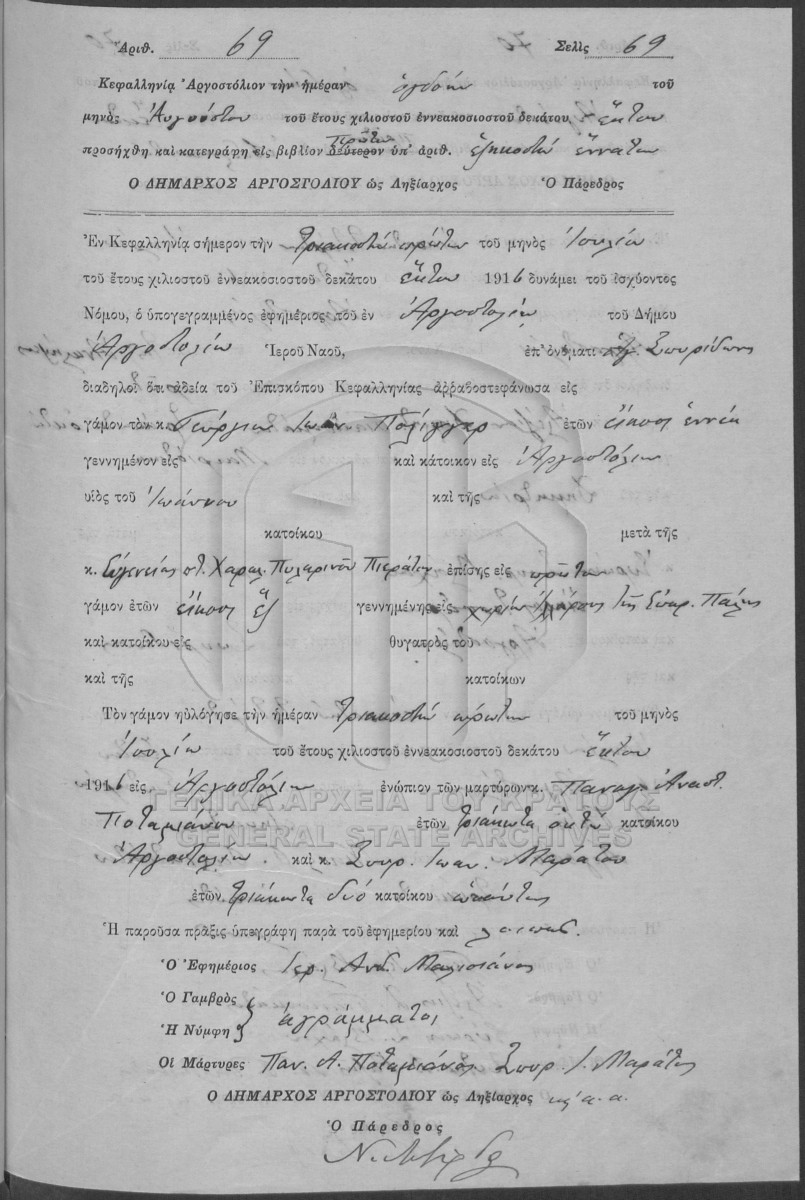 Ἀριθ. 69 Σελὶς 69
Κεφαλληνίᾳ Ἀργοστόλιον τὴν ἡμέραν ὀγδόην τοῦ
μηνὸς Αὐγούστου τοῦ ἔτους χιλιοστοῦ ἐννεακοσιοστοῦ δεκάτου ἕκτου
πρῶτον
προσήχθη καὶ κατεγράφη εἰς βιβλίον δεύτερον ὑπ' ἀριθ. ἑξηκοστὸν ἔννατον
Ὁ ΔΗΜΑΡΧΟΣ ΑΡΓΟΣΤΟΛΙΟΥ ὡς Ληξίαρχος Ὁ Πάρεδρος
Ἐν Κεφαλληνίᾳ σήμερον τὴν τριακοστὴν πρώτην τοῦ μηνὸς Ἰουλίου
τοῦ ἔτους χιλιοστοῦ ἐννεακοσιοστοῦ δεκάτου ἕκτου 1916 δυνάμει τοῦ ἰσχύοντος
Νόμου, ὁ ὑπογεγραμμένος ἐφημέριος τοῦ ἐν Ἀργοστολίῳ τοῦ Δήμου
Ἀργοστολίου Ἱεροῦ Ναοῦ, ἐπ' ὀνόματι Ἁγ. Σπυρίδωνος
διαδηλοῖ ὅτι ἀδείᾳ τοῦ Ἐπισκόπου Κεφαλληνίας ἀρραβοστεφάνωσα εἰς
γάμον τὸν κ. Γεώργιον Ἰωάν. ἐτῶν εἴκοσι ἐννέα
γεννημένον εἰς καὶ κάτοικον εἰς Ἀργοστόλιον
υἱὸς τοῦ Ἰωάννου καὶ τῆς
κατοίκου μετὰ τῆς
κ. Εὐγενίας Χαραλ. Πυλαρινοῦ Πιεράτου ἐπίσης εἰς πρῶτον
γάμον ἐτῶν εἴκοσι ἕξ γεννημένης εἰς χωρίον τῆς Παλης
καὶ κατοίκου εἰς θυγατρὸς τοῦ
καὶ τῆς κατοίκων
Τὸν γάμον ηὐλόγησε τὴν ἡμέραν τριακοστὴν πρώτην τοῦ μηνὸς
Ἰουλίου τοῦ ἔτους χιλιοστοῦ ἐννεακοσιοστοῦ δεκάτου ἕκτου
1916 εἰς Ἀργοστόλιον ἐνώπιον τῶν μαρτύρων κ. Παναγ. Ἀναστ.
ΓΕΝΙΚΑ ΑΡΧΕΙΑ ΤΟΥ ΚΡΑΤΟΥΣ
Ποταμιάνου ἐτῶν τριάκοντα ὀκτὼ κατοίκου
GENERAL STATE ARCHIVES
Ἀργοστολίου καὶ κ. Σπυρ. Ἰωαν. Μαράτου
ἐτῶν τριάκοντα δύο κατοίκου ὡσαύτως
Ἡ παροῦσα πρᾶξις ὑπεγράφη παρὰ τοῦ ἐφημερίου καὶ
Ὁ Ἐφημέριος Ἱερ. Ἀνδ.
Ὁ Γαμβρὸς
Ἡ Νύμφη ἀγράμματοι
Οἱ Μάρτυρες Παν. Α. Ποταμιάνος Σπυρ. Ι. Μαράτος
Ὁ ΔΗΜΑΡΧΟΣ ΑΡΓΟΣΤΟΛΙΟΥ ὡς Ληξίαρχος κ. α. α.
Ὁ Πάρεδρος